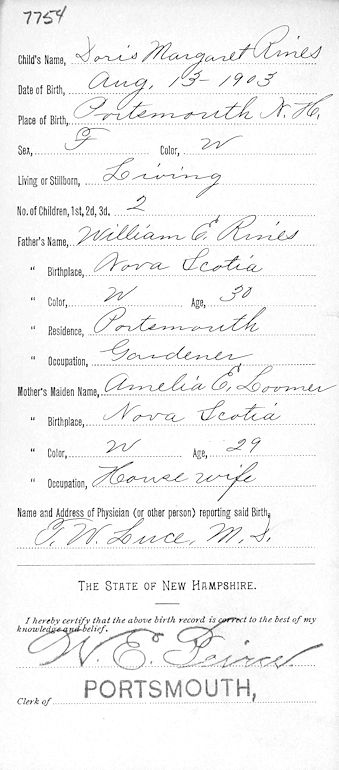 7754
Child's Name, Doris Margaret Rines
Date of Birth, Aug. 13 - 1903
Place of Birth, Portsmouth N. H.
Sex, F Color, W
Living or Stillborn, Living
No. of Children, 1st, 2d, 3d. 2
Father's Name, William E. Rines
" Birthplace, Nova Scotia
" Color, W Age, 30
" Residence, Portsmouth
" Occupation, Gardener
Mother's Maiden Name, Amelia E. Loomer
" Birthplace, Nova Scotia
" Color, W Age, 29
" Occupation, House wife
Name and Address of Physician (or other person) reporting said Birth,
F. W. Luce, M. D.
THE STATE OF NEW HAMPSHIRE.
I hereby certify that the above birth record is correct to the best of my
knowledge and belief.
W. E. Peirce
Clerk of PORTSMOUTH,